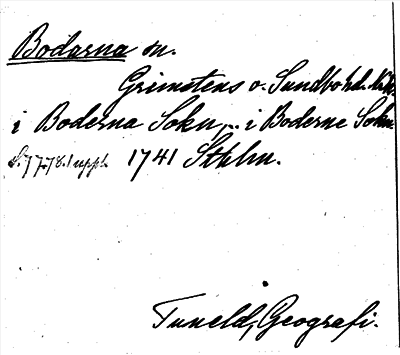 Bodarna sn.
Grimstens o. Sundbo hd. Närk.
i Boderna Sokn, .. i Boderne Sokn
S. 77.78. 1 uppl. 1741 Sthlm.
Tuneld, Geografi.